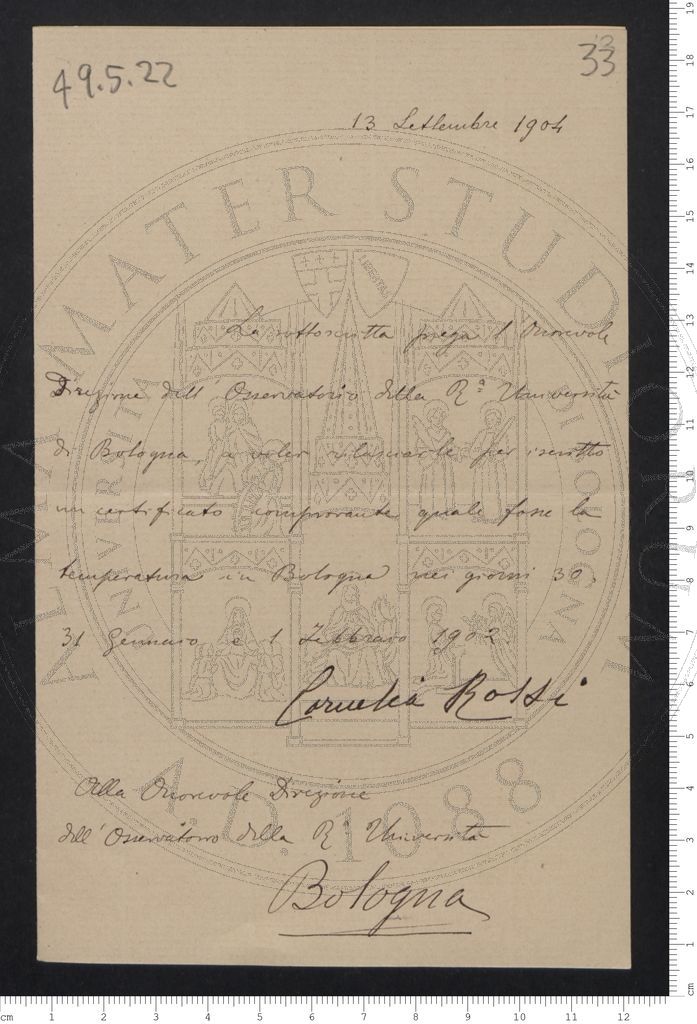 49.5.22
33
13 Settembre 1904
La sottoscritta prega l'Onorevole
Direzione dell'Osservatorio della Rª Università
di Bologna, a voler rilasciarle per iscritto
un certificato comprovante quale fosse la
temperatura in Bologna nei giorni 30,
31 Gennaro e 1 Febbraro 1902
Cornelia Rossi
Alla Onorevole Direzione
dell'Osservatorio della Rª Università
Bologna
ALMA MATER STUDIORUM
UNIVERSITÀ DI BOLOGNA
LIBERTAS
A.D. 1088